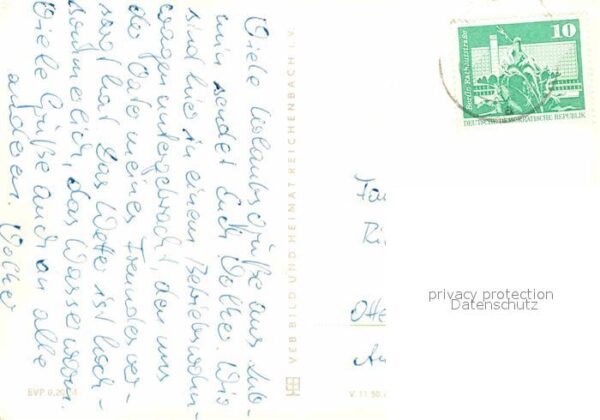 Viele Urlaubsgrüße aus Sub-
min sendet Euch Volker. Wir
sind hier in einem Betriebswohn-
wagen untergebracht, den uns
der Vater meines Freundes ver-
sorgt hat. Das Wetter ist hoch-
sommerlich, das Wasser warm.
Viele Grüße auch an alle
anderen. Volker
VEB BILD UND HEIMAT REICHENBACH I. V.
EVP 0,20
V 11 50
10
Berlin Rathausstraße
DEUTSCHE DEMOKRATISCHE REPUBLIK
Fa
Ri
Otte
privacy protection
Datenschutz